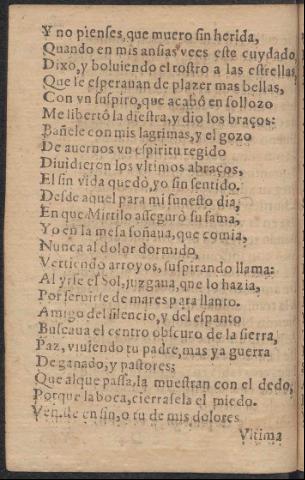 Y no pienses, que muero sin herida,
Quando en mis ansias vees este cuydado,
Dixo, y boluiendo el rostro a las estrellas,
Que le esperauan de plazer mas bellas,
Con vn suspiro, que acabó en sollozo
Me libertó la diestra, y dio los braços:
Bañele con mis lagrimas, y el gozo
De auernos vn espiritu regido
Diuidieron los vltimos abraços,
El sin vida quedó, yo sin sentido.
Desde aquel para mi funesto dia,
En que Mirtilo asseguró su fama,
Yo en la mesa soñaua, que comia,
Nunca al dolor dormido,
Vertiendo arroyos, suspirando llama:
Al yrse el Sol, juzgaua, que lo hazia,
Por seruirse de mares para llanto.
Amigo del silencio, y del espanto
Buscaua el centro obscuro de la sierra,
Paz, viuiendo tu padre, mas ya guerra
De ganado, y pastores;
Que al que passa, la muestran con el dedo,
Porque la boca, cierrasela el miedo.
Venste en fin, o tu de mis dolores
Vltima